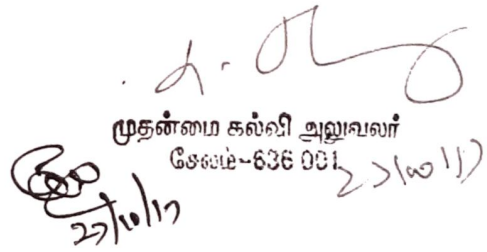 முதன்மை கல்வி அலுவலர்
சேலம்-636 001
27/10/17
27/10/17